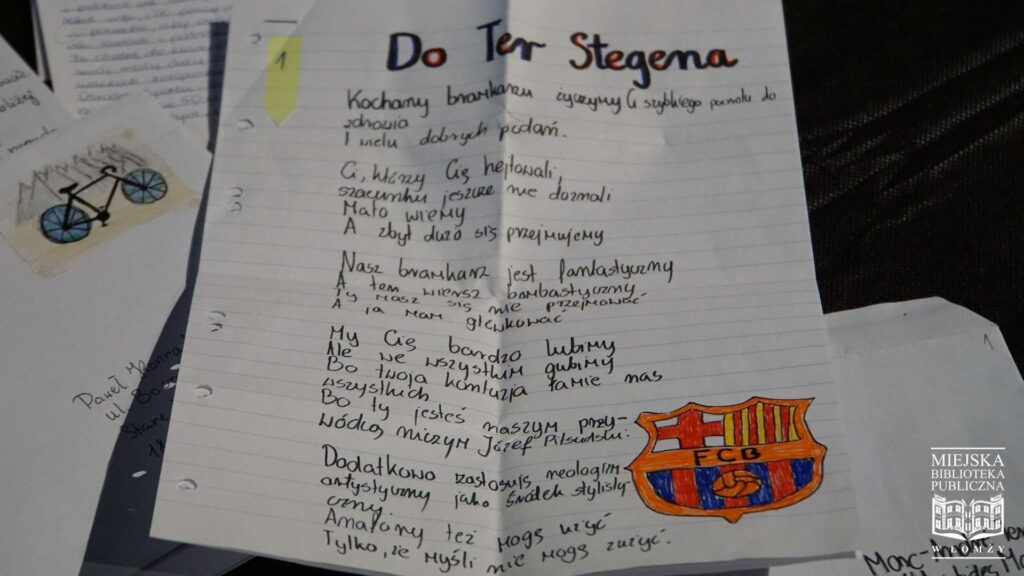 1
Do Ter Stegena
Kochany bramkarzu życzymy Ci szybkiego powrotu do
zdrowia
I wielu dobrych podań.
Ci, którzy Cię hejtowali,
szacunku jeszcze nie doznali
Mało wiemy
A zbyt dużo się przejmujemy
Nasz bramkarz jest fantastyczny
A ten wiersz bombastyczny
Ty masz się nie przejmować
A ja mam główkować
My Cię bardzo lubimy
Ale we wszystkim gubimy
Bo twoja kontuzja łamie nas
wszystkich
Bo ty jesteś naszym przy-
wódcą niczym Józef Piłsudski.
Dodatkowo zastosuję neologizm
artystyczny jako środek stylisty
czny.
Anafory też mogę użyć
Tylko, że myśli nie mogę zużyć.
FCB
Paweł
ul.
1
MIEJSKA
BIBLIOTEKA
PUBLICZNA
W ŁOMŻY